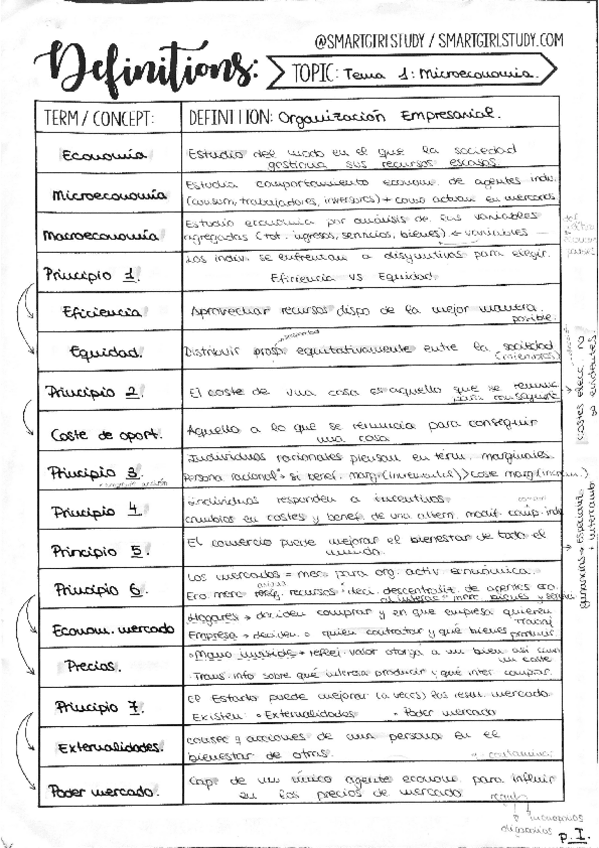 @SMARTGIRLSTUDY / SMARTGIRLSTUDY.COM
Definitions:
TOPIC: Tema 1: Microeconomía.
TERM / CONCEPT:
DEFINITION: Organización Empresarial.
Economía
Estudio del modo en el que la sociedad
gestiona sus recursos escasos.
Microeconomía
Estudia comportamiento econom. de agentes indiv.
(consum, trabajadores, inversores) + como actuan en mercados
Macroeconomía
Estudio economía por análisis de las variables
agregadas (tot. ingresos, servicios, bienes). variables
Principio 1.
Los indiv. se enfrentan a disyuntivas para elegir.
Eficiencia vs Equidad.
Eficiencia
Aprovechar recursos dispo de la mejor manera
posible.
Equidad.
Distribuir prosp. equitativamente entre la sociedad
(miembros)
Principio 2.
El coste de una cosa es aquello que se renuncia
para conseguirla
costes elecc. no
Coste de oport.
Aquello a lo que se renuncia para conseguir
una cosa
Principio 3.
Individuos racionales piensan en térm. marginales.
Persona racional si benef. marg. (incremental) > coste marg.
Principio 4.
Individuos responden a incentivos.
cambios en costes y benef. de una altern. modif. comp. indv
Principio 5.
El comercio puede mejorar el bienestar de todo el
mundo.
ganancias → especiali.
+ intercamb
Principio 6.
Los mercados = mec. para org. activ. económica.
Eco. merc recursos deci. descentraliz. de agentes eco.
Econom. mercado
Hogares → deciden comprar y en que empresa quieren
trabaj
Empresa → deciden a quien contratar y qué bienes producir
Precios.
Mano invisible → reflej. valor otorga a un bien así como
un coste
Trans. info sobre qué interesa producir y qué inter comprar.
Principio 7.
El Estado puede mejorar (a veces) los resul. mercado
Existen Externalidades Poder mercado
Externalidades.
consec y acciones de una persona en el
bienestar de otras.
Poder mercado.
Cap. de un único agente econom para influir
en los precios de mercado
p. I.